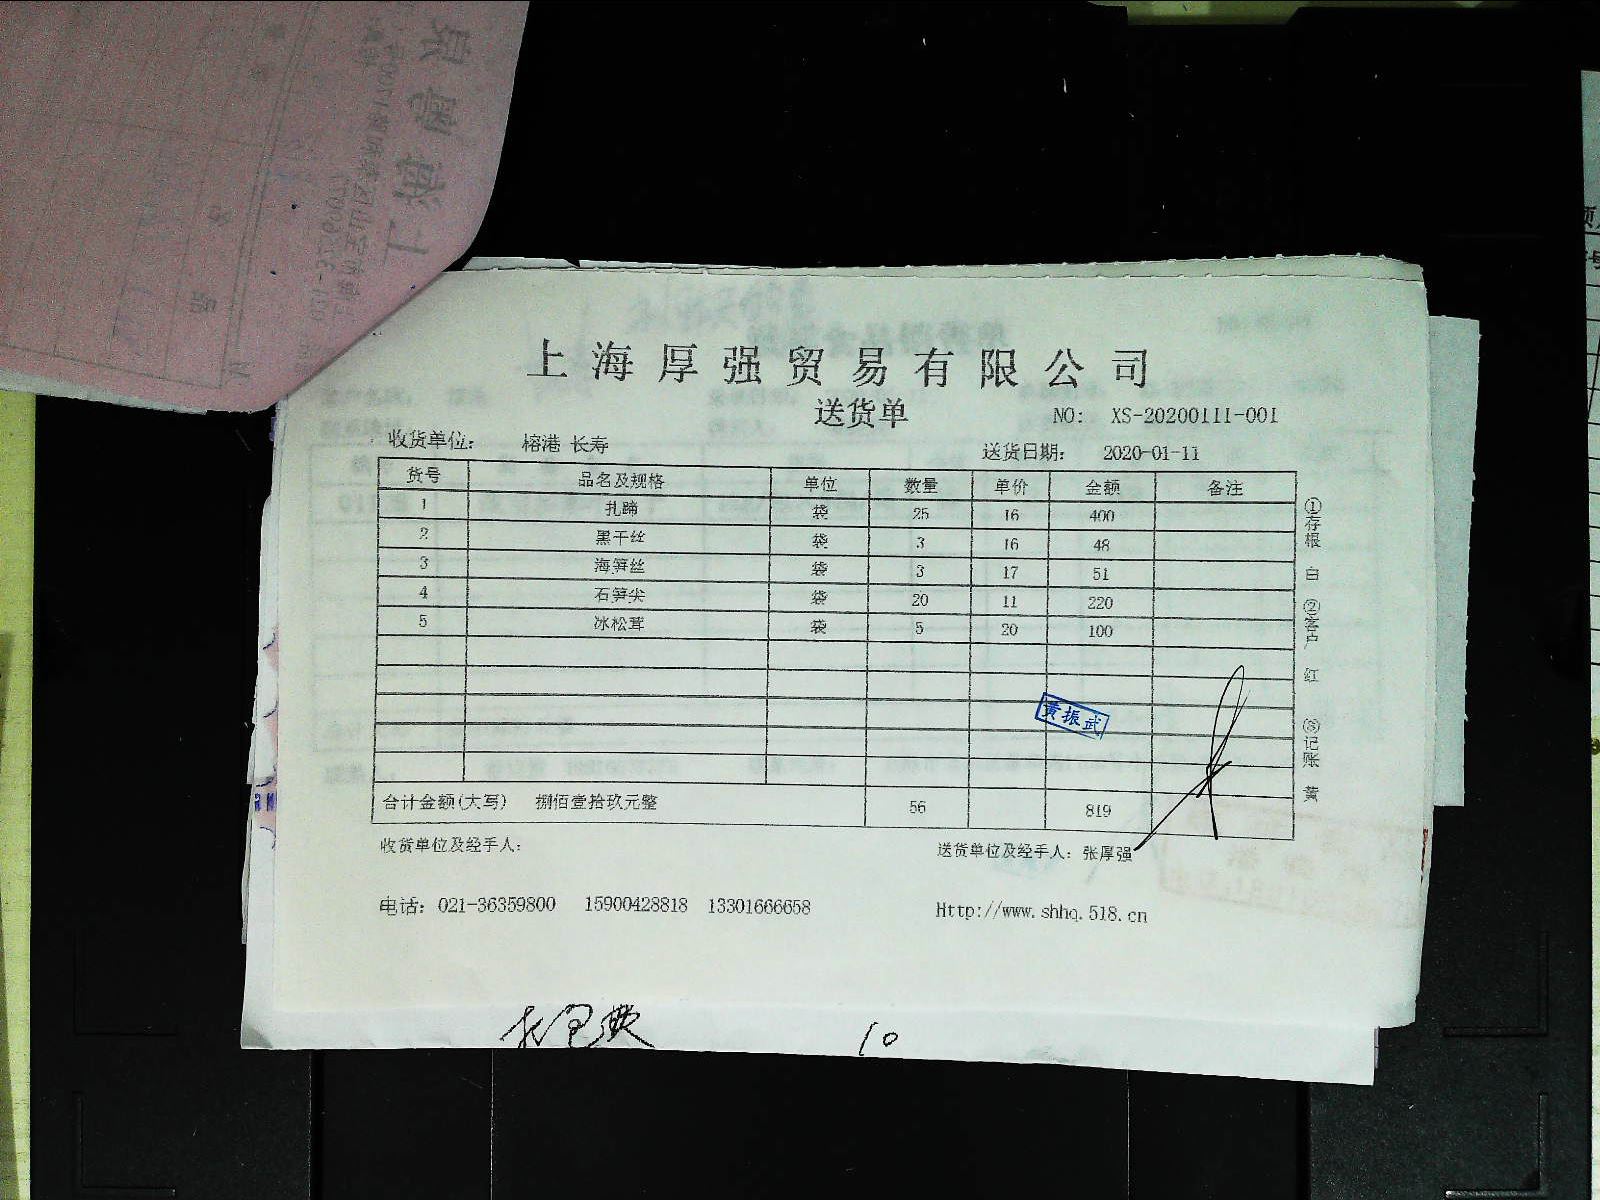 上海厚强贸易有限公司
送货单
NO: XS-20200111-001
收货单位: 榕港 长寿
送货日期: 2020-01-11
货号 品名及规格 单位 数量 单价 金额 备注
1 扎蹄 袋 25 16 400
2 黑干丝 袋 3 16 48
3 海笋丝 袋 3 17 51
4 石笋尖 袋 20 11 220
5 冰松茸 袋 5 20 100
黄振武
合计金额(大写) 捌佰壹拾玖元整 56 819
①存根 白 ②客户 红 ③记账 黄
收货单位及经手人:
送货单位及经手人: 张厚强
电话: 021-36359800 15900428818 13301666658
Http://www.shhq.518.cn
10